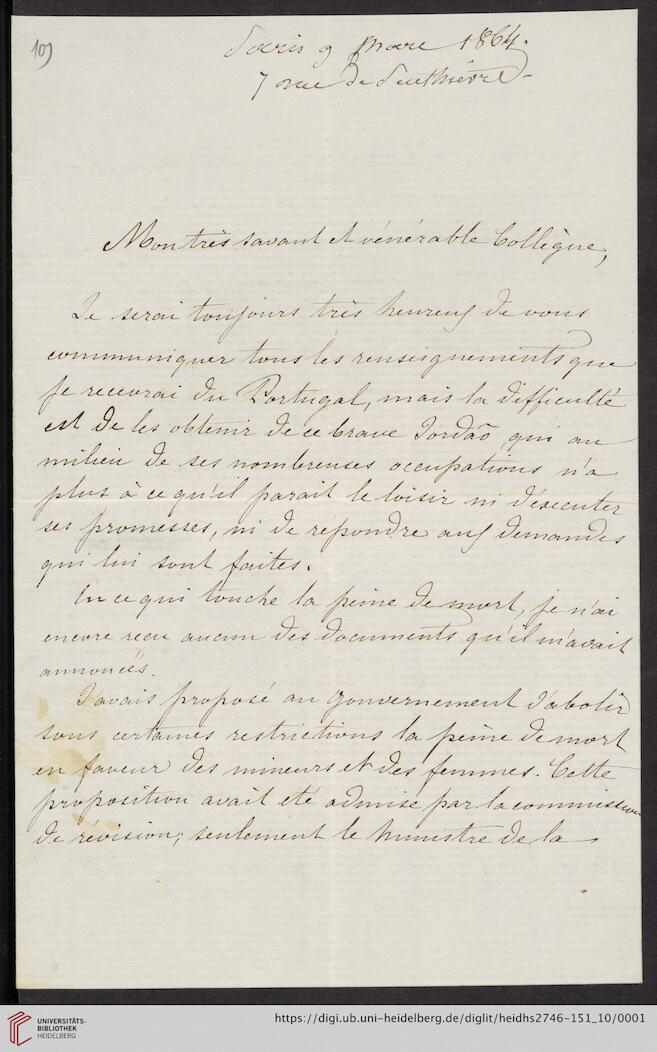 109
Paris 9 Mars 1864.
7 rue de Penthièvre
Mon très savant et vénérable Collègue,
Je serai toujours très heureux de vous
communiquer tous les renseignements que
je recevrai du Portugal, mais la difficulté
est de les obtenir de ce brave Jordaõ qui au
milieu de ses nombreuses occupations n'a
plus à ce qu'il parait le loisir ni d'éxécuter
ses promesses, ni de répondre aux demandes
qui lui sont faites.
En ce qui touche la peine de mort, je n'ai
encore reçu aucun des documents qu'il m'avait
annoncés.
J'avais proposé au gouvernement d'abolir
sous certaines restrictions la peine de mort
en faveur des mineurs et des femmes. Cette
proposition avait été admise par la commission
de révision; seulement le Ministre de la
UNIVERSITÄTS-
BIBLIOTHEK
HEIDELBERG
https://digi.ub.uni-heidelberg.de/diglit/heidhs2746-151_10/0001